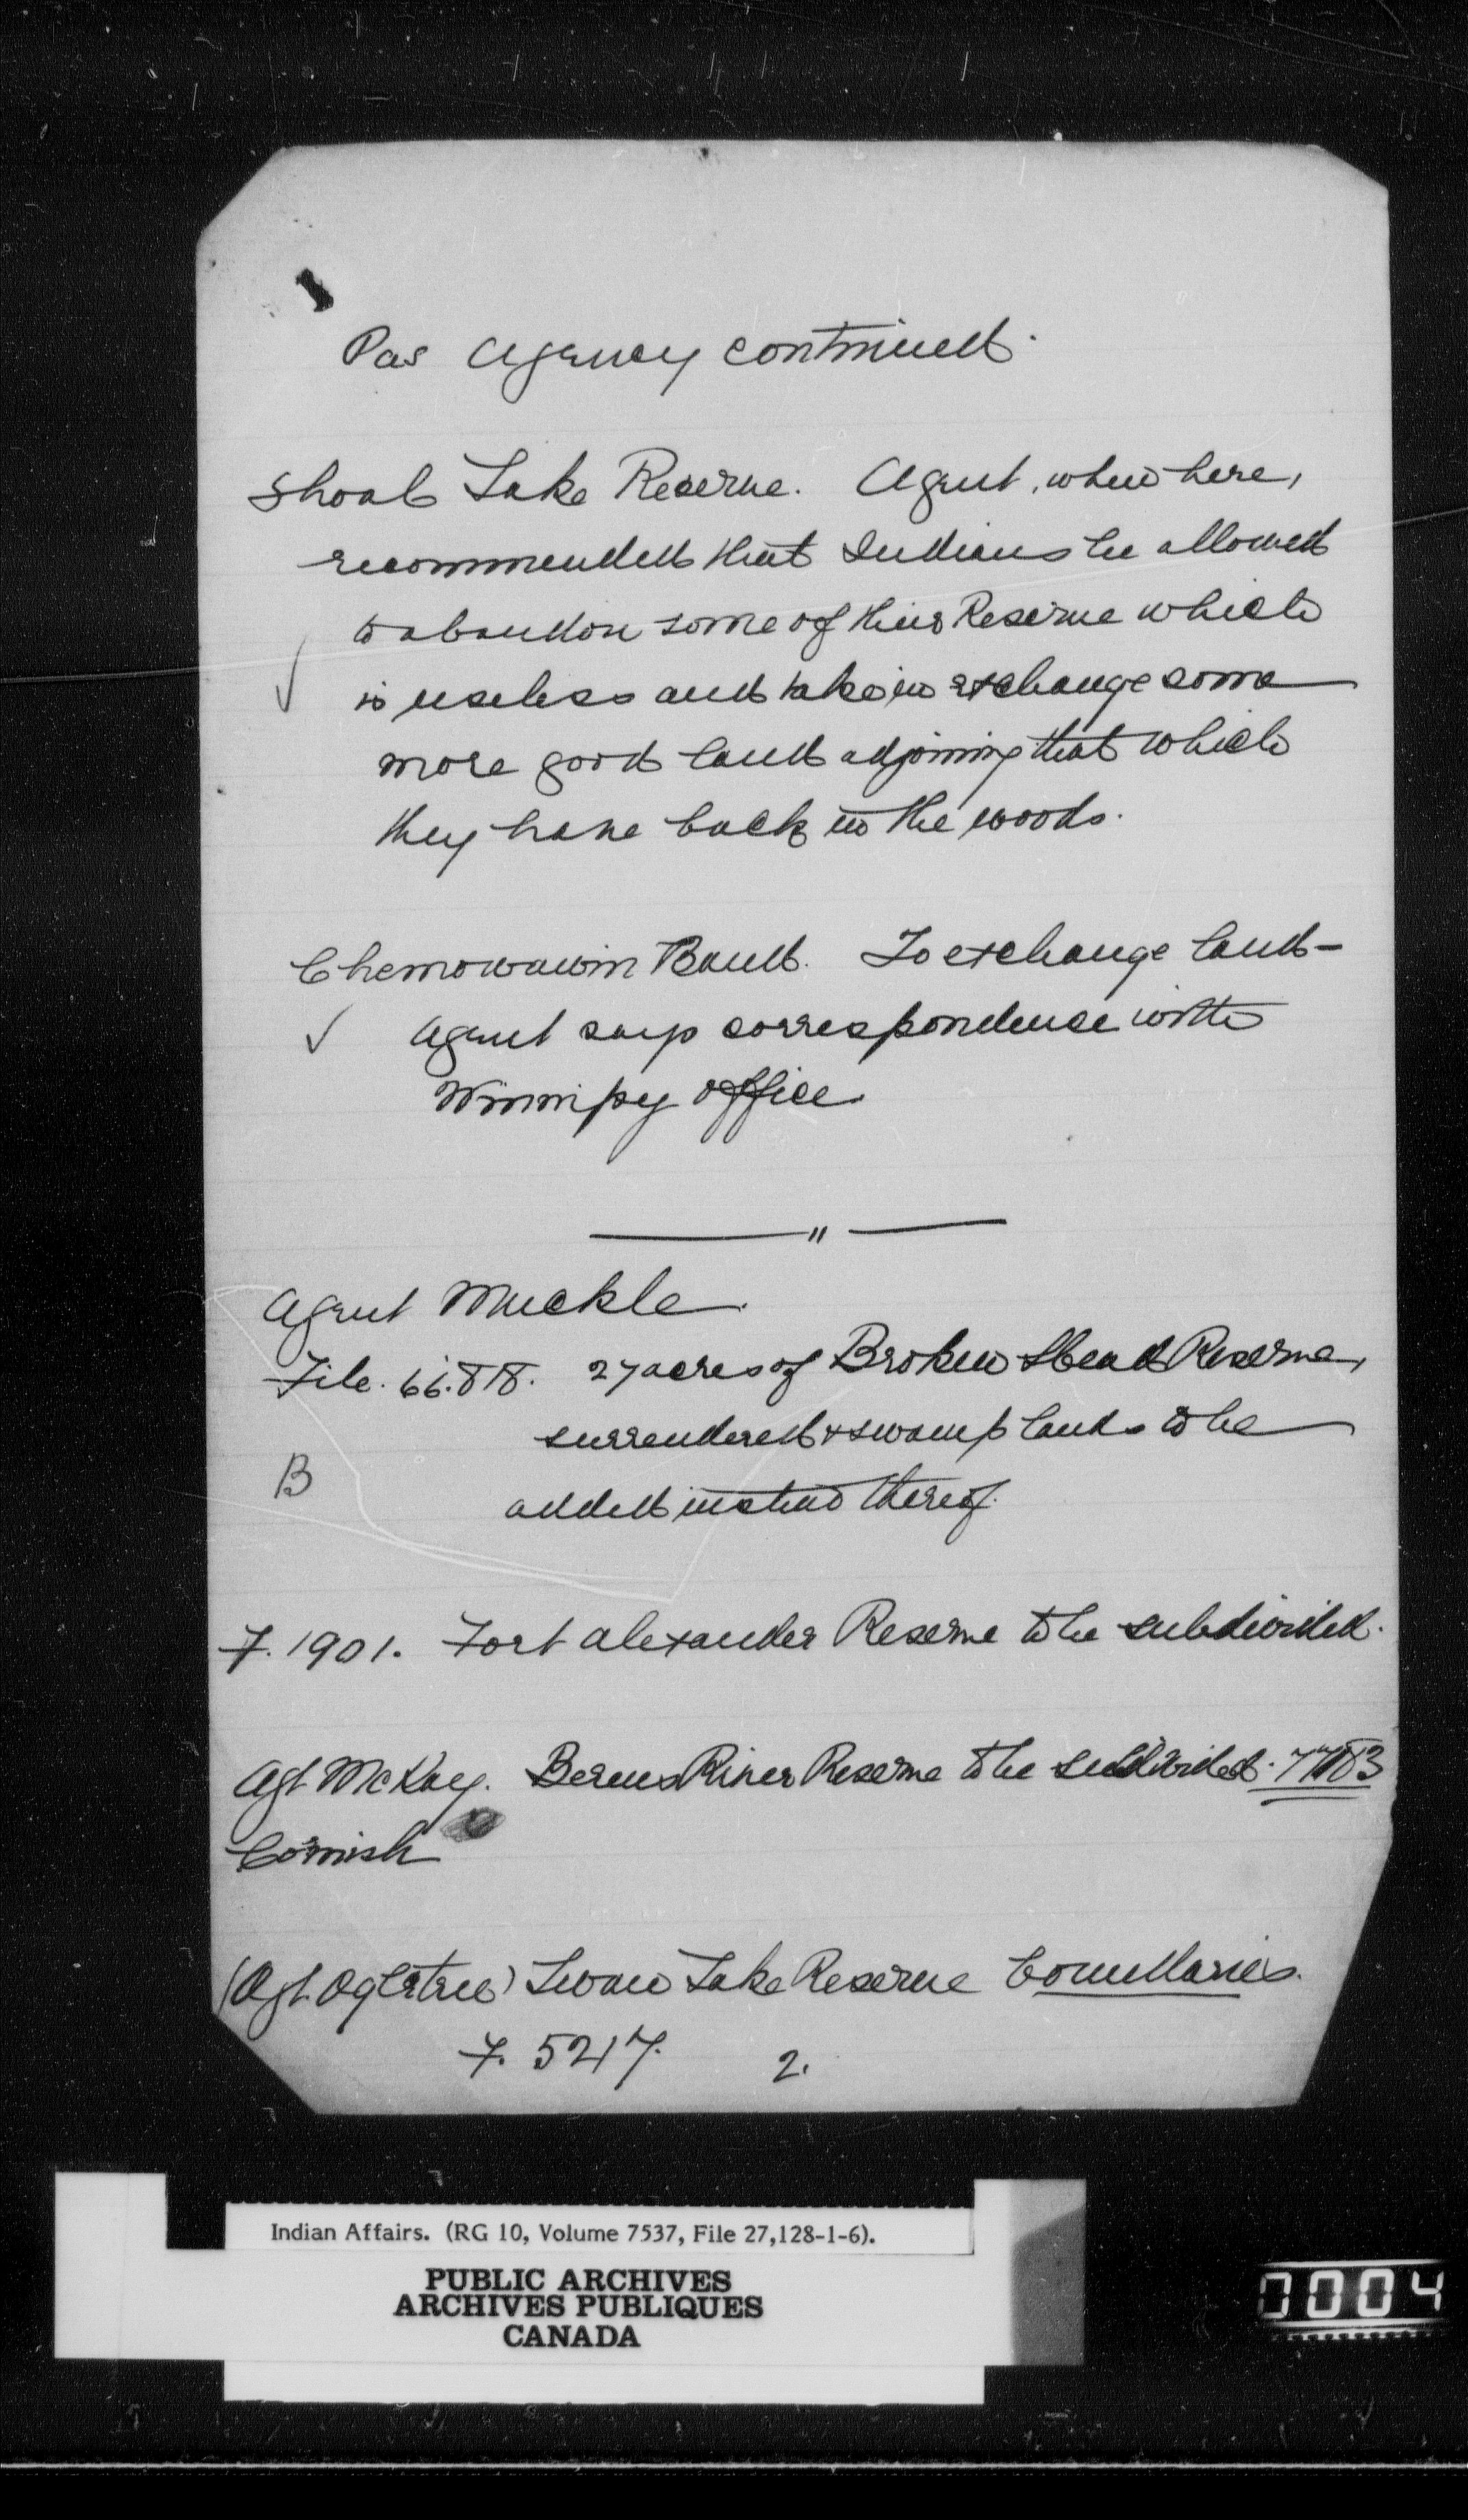 Pas Agency continued.
Shoal Lake Reserve. Agent, when here,
recommended that Indians be allowed
to abandon some of their Reserve which
✓ is useless and take in exchange some
more good land adjoining that which
they have back in the woods.
Chemowawin Band. To exchange land—
✓ Agent says correspondence with
Winnipeg office.
"
Agent Muckle.
File. 66.818. 27 acres of Broken Head Reserve,
surrendered & swamp lands to be
B
added instead thereof.
F. 1901. Fort Alexander Reserve to be subdivided.
Agt McKay. Berens River Reserve to be subdivided.
Cornish
(Agt. Ogletree) Swan Lake Reserve Boundaries.
F. 5217. 2.
Indian Affairs. (RG 10, Volume 7537, File 27,128-1-6).
PUBLIC ARCHIVES
ARCHIVES PUBLIQUES
CANADA
0004